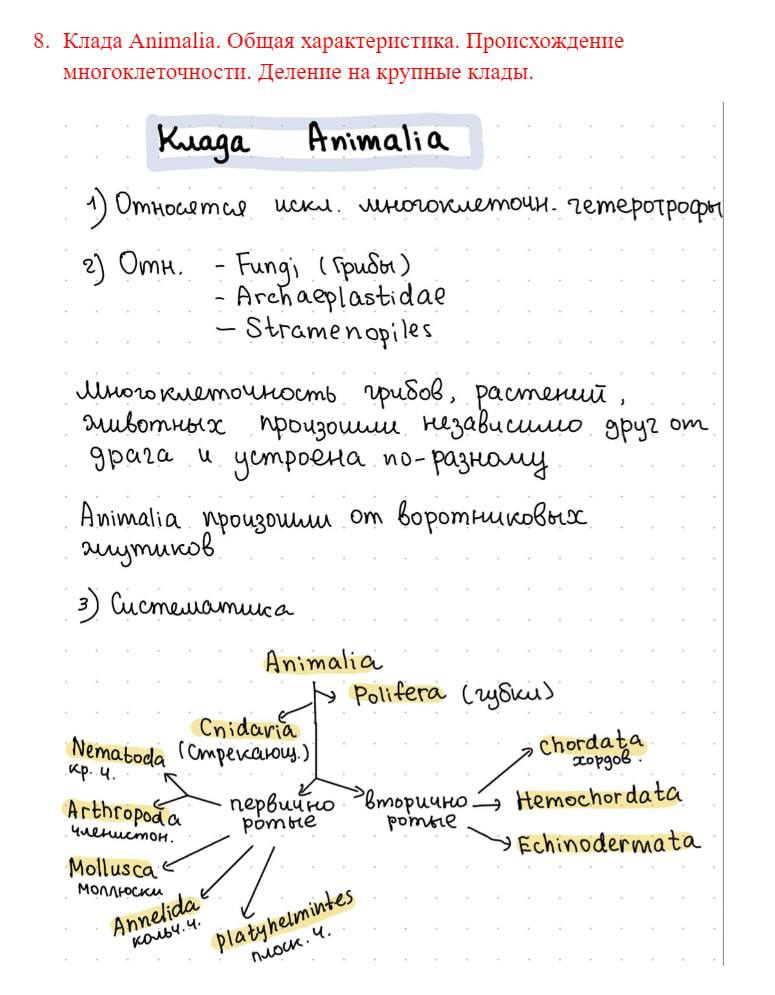 8. Клада Animalia. Общая характеристика. Происхождение
многоклеточности. Деление на крупные клады.
Клада Animalia
1) Относятся искл. многоклеточн. гетеротрофы
2) Отн. - Fungi (Грибы)
- Archaeplastidae
- Stramenopiles
Многоклеточность грибов, растений,
животных произошли независимо друг от
драга и устроена по-разному
Animalia произошли от воротниковых
жгутиков
3) Систематика
Animalia
Polifera (губки)
Cnidaria
(Стрекающ.)
Nematoda
кр. ч.
Arthropoda
членистон.
Mollusca
моллюски
Annelida
кольч. ч.
Platyhelmintes
плоск. ч.
первично
ротые
вторично
ротые
Chordata
хордов.
Hemochordata
Echinodermata